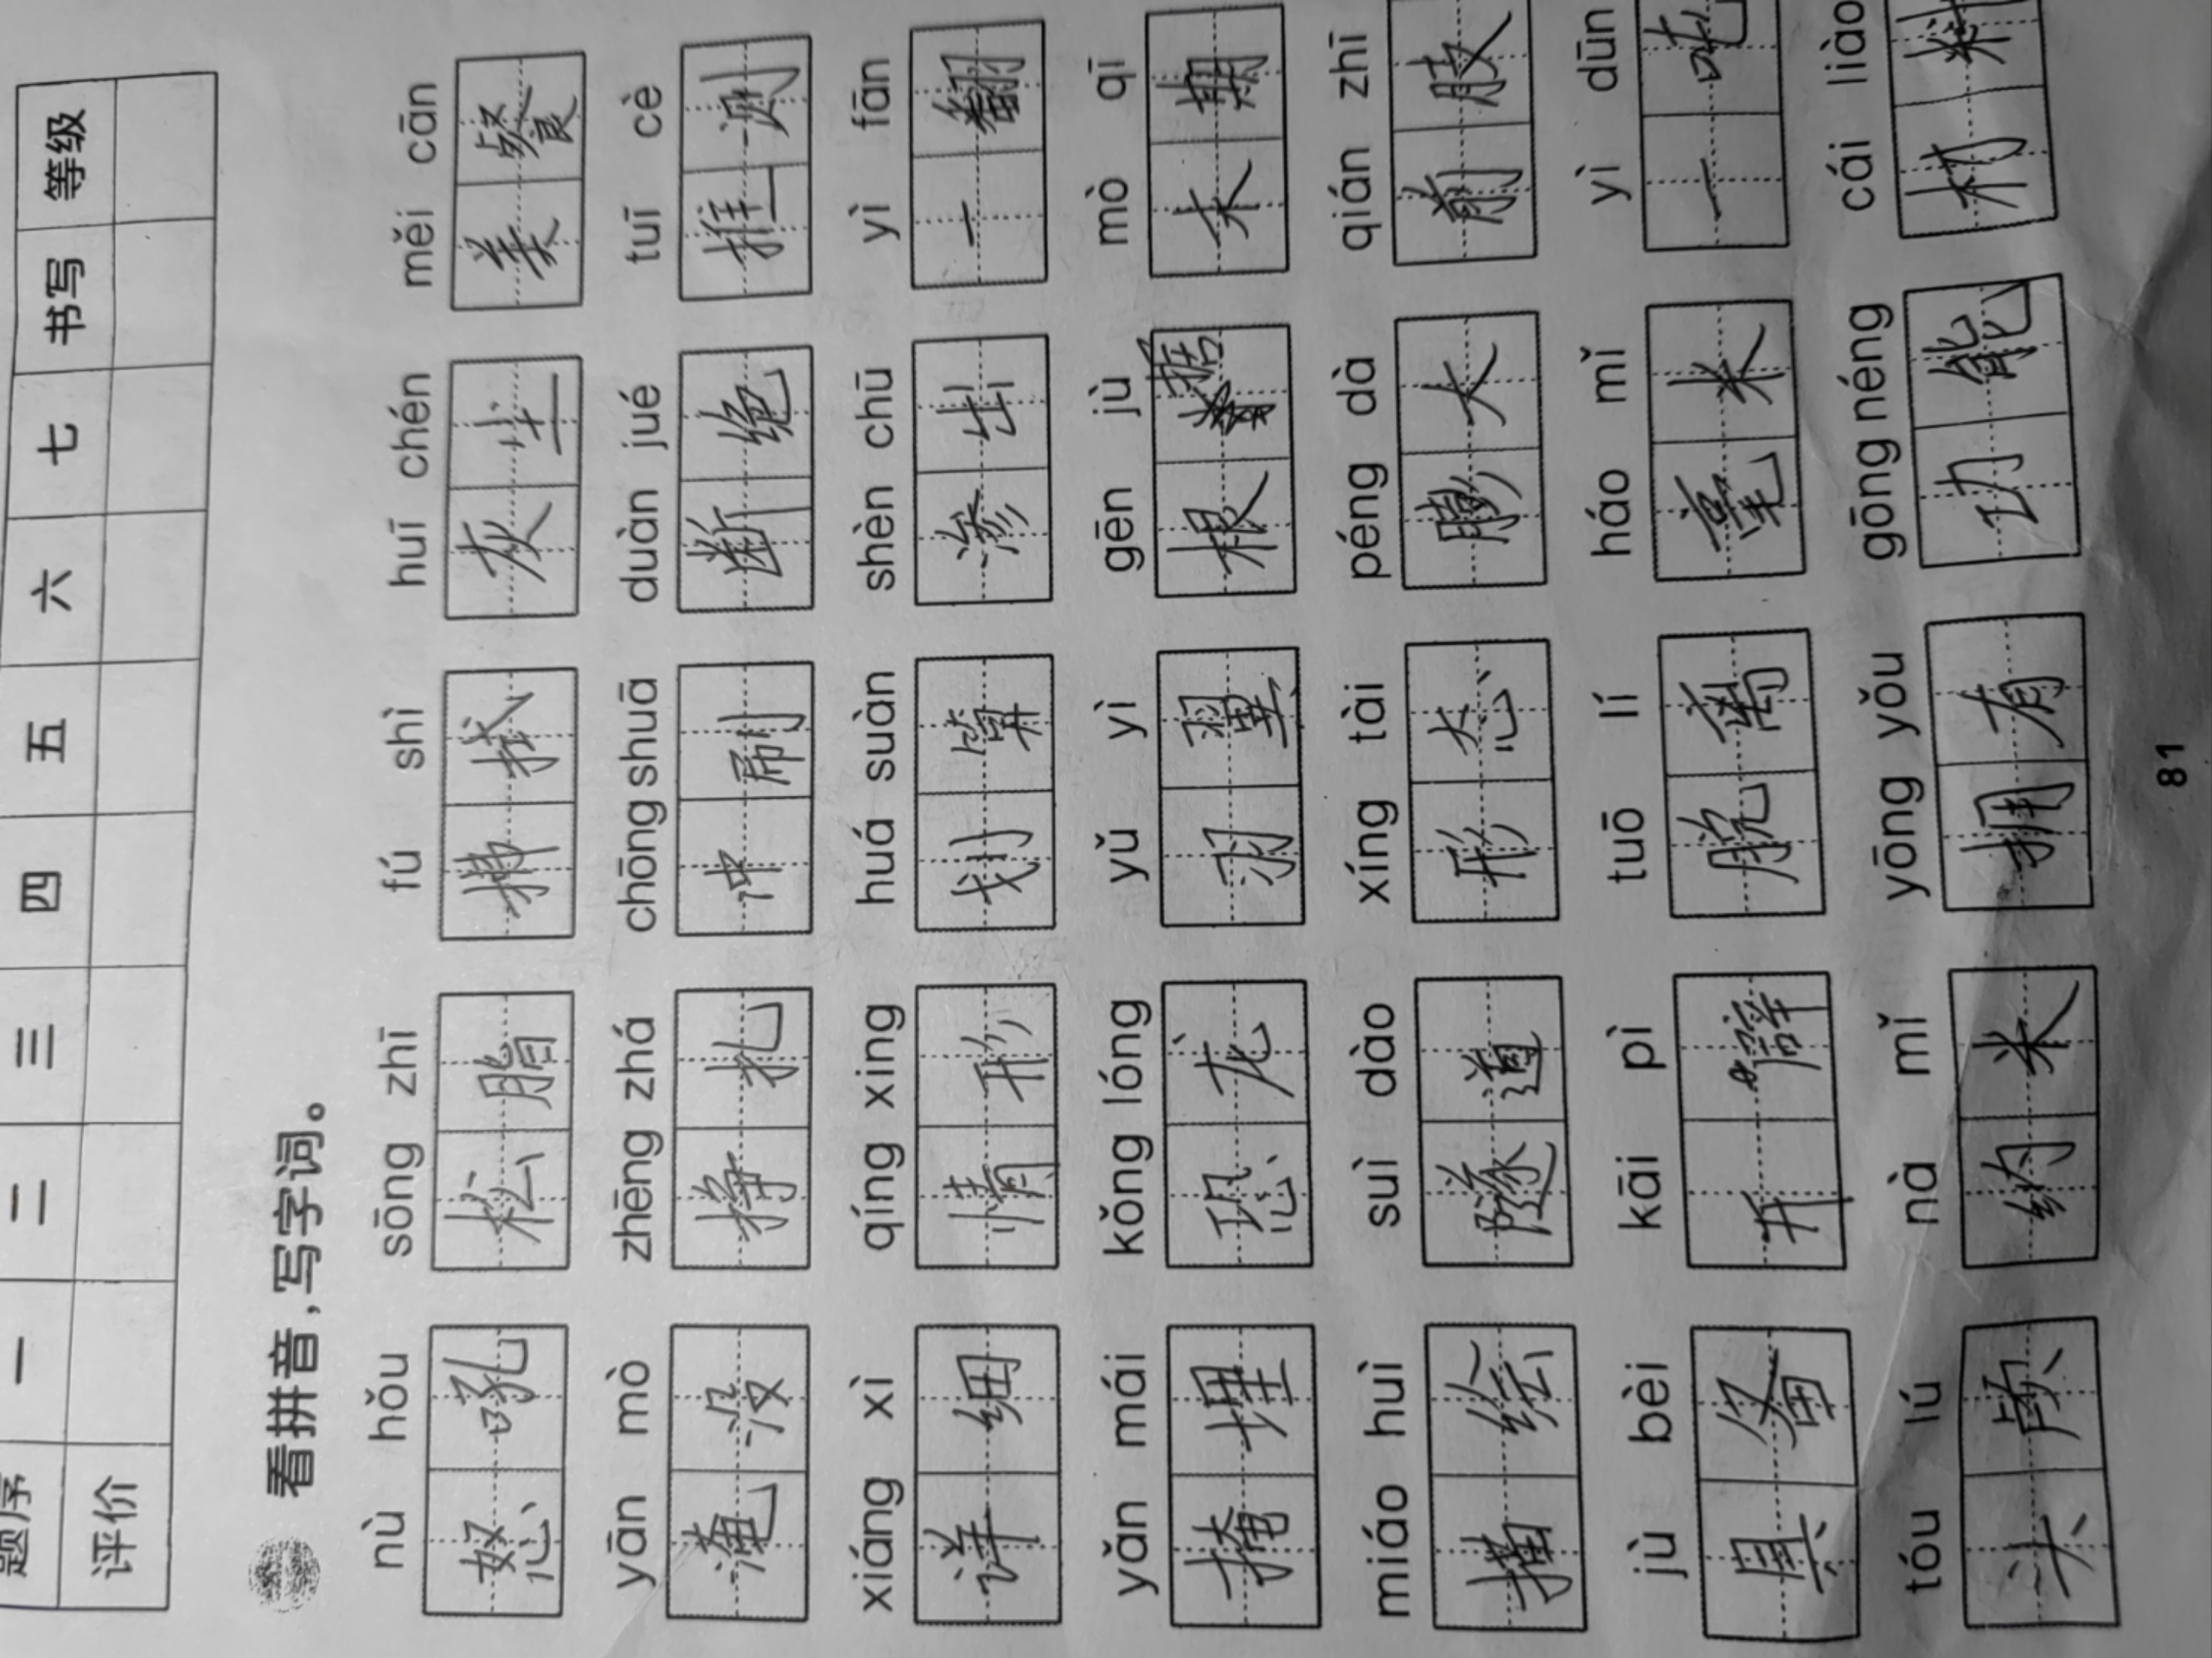 题序 一 二 三 四 五 六 七 书写 等级
评价
看拼音,写字词。
nù hǒu sōng zhī fú shì huī chén měi cān
怒吼 松脂 拂拭 灰尘 美餐
yān mò zhēng zhá chōng shuā duàn jué tuī cè
淹没 挣扎 冲刷 断绝 推测
xiáng xì qíng xing huá suàn shèn chū yì fān
详细 情形 划算 渗出 一翻
yǎn mái kǒng lóng yǔ yì gēn jù mò qī
掩埋 恐龙 羽翼 根据 末期
miáo huì suì dào xíng tài péng dà qián zhī
描绘 隧道 形态 膨大 前肢
jù bèi kāi pì tuō lí háo mǐ yì dūn
具备 开辟 脱离 毫米 一吨
tóu lú nà mǐ yōng yǒu gōng néng cái liào
头颅 纳米 拥有 功能 材料
81